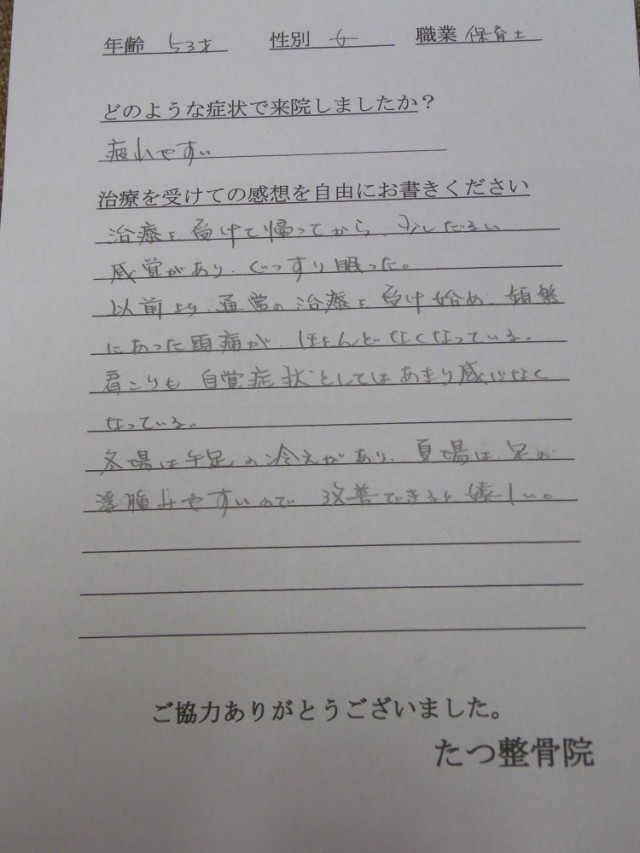 年齢 53才 性別 女 職業 保育士
どのような症状で来院しましたか？
疲れやすい
治療を受けての感想を自由にお書きください
治療を受けて帰ってから、少しだるい
感覚があり、ぐっすり眠った。
以前より、通常の治療を受け始め、頻繁
にあった頭痛が、ほとんどなくなっている。
肩こりも 自覚症状としてはあまり感じなく
なっている。
冬場は手足の冷えがあり、夏場は、足の
浮腫みやすいので 改善できると嬉しい。
ご協力ありがとうございました。
たつ整骨院